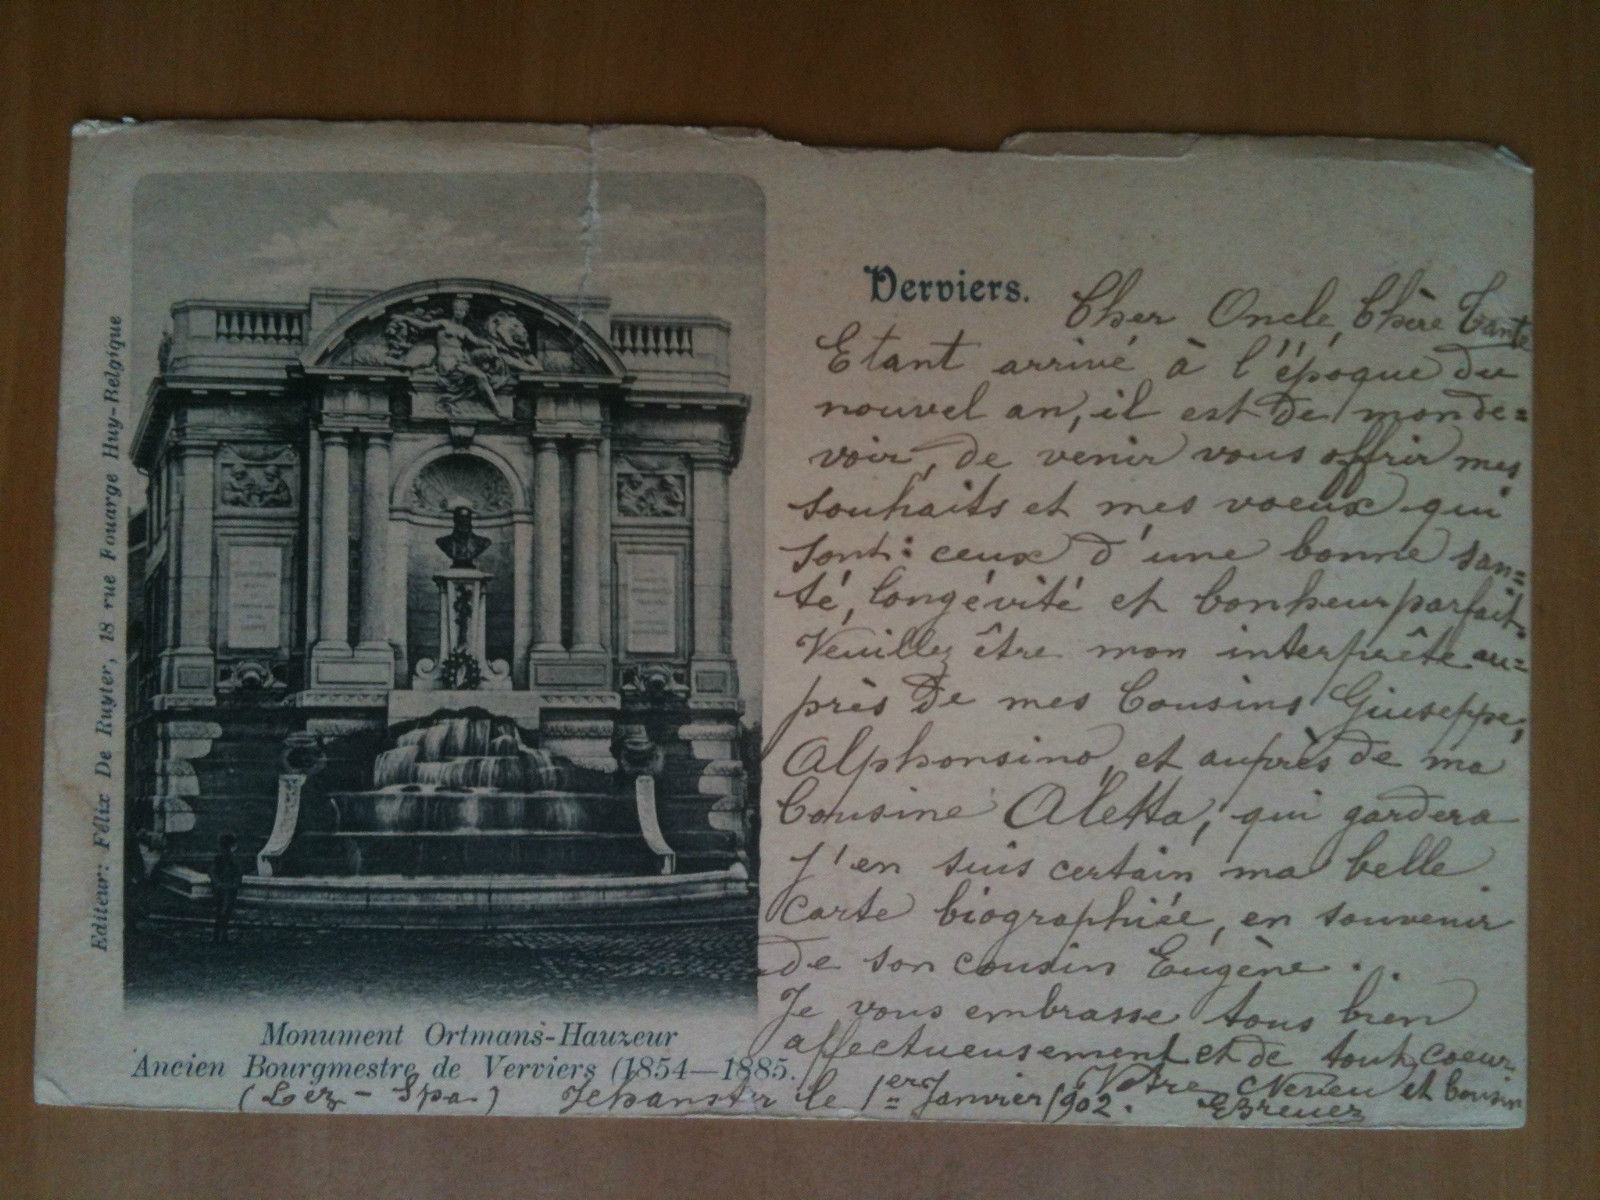 Editeur: Félix De Ruyter, 18 rue Fouarge Huy-Belgique
Verviers.
Cher Oncle, Chère Tante
Etant arrivé à l'époque du
nouvel an, il est de mon de=
voir, de venir vous offrir mes
souhaits et mes voeux qui
sont: ceux d'une bonne san=
té, longévité et bonheur parfait.
Veuillez être mon interprête au=
près de mes Cousins Giuseppe,
Alphonsino, et auprès de ma
Cousine Aletta, qui gardera
j'en suis certain ma belle
Carte biographiée, en souvenir
de son cousin Eugène.
Je vous embrasse tous bien
affectueusement et de tout coeur
Votre Neveu et Cousin
EBreuer
Monument Ortmans-Hauzeur
Ancien Bourgmestre de Verviers (1854—1885.
(Lez-Spa) Jehanster le 1er Janvier 1902.